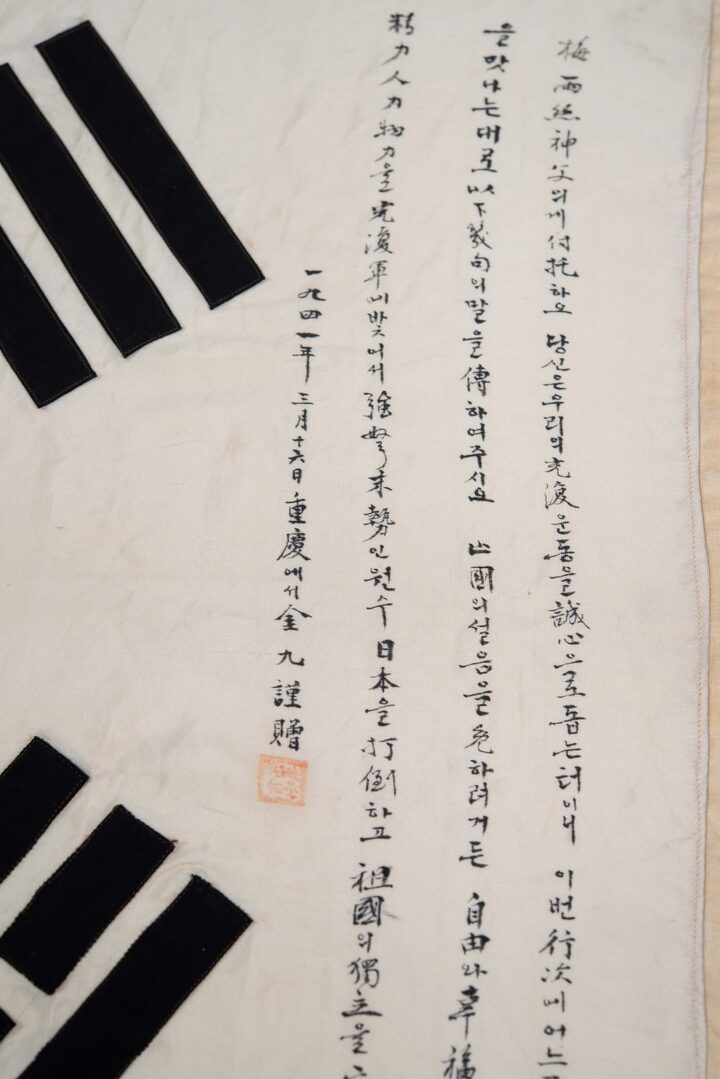 梅雨絲神父의게 付托하오 당신은우리의光復운동을誠心으로돕는터이니 이번行次에어느
을맛나는대로以下幾句의말을傳하여주시오 亡國의설음을免하려거든 自由와幸福
精力人力物力을光復軍에밧어서强弩末勢인원수日本을打倒하고 祖國의獨立을
一九四一年 三月十六日 重慶에서 金九 謹贈